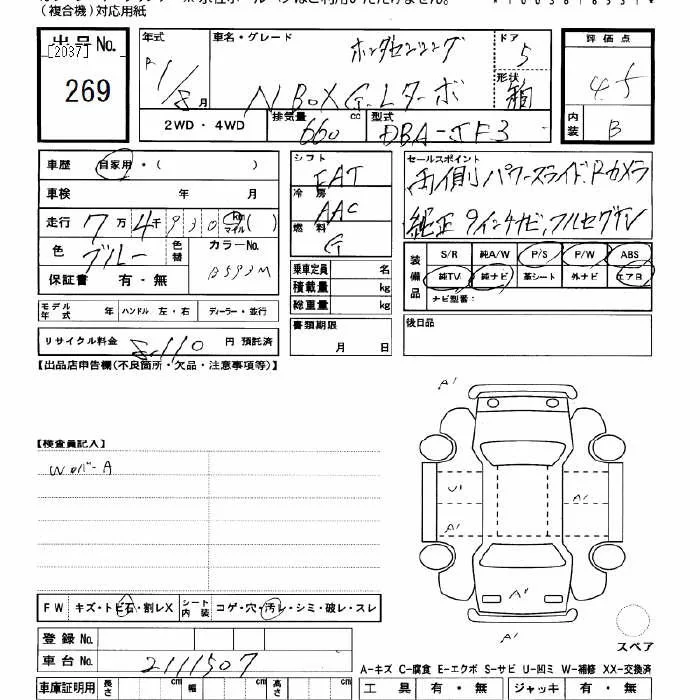 (複合機)対応用紙
出品No. 年式 車名・グレード ホンダセンシング ドア 5 評価点
[2037]
269 R1/8月 N BOX G.Lターボ 形状 箱 4.5
2WD・4WD 排気量 660 cc 型式 DBA-JF3 内装 B
車歴 自家用・( )
車検 年 月
走行 7万4千930 km マイル( )
色 ブルー 色替 カラーNo. B593M
保証書 有・無
シフト FAT
冷房 AAC
燃料 G
乗車定員 名
積載量 kg
総重量 kg
セールスポイント
両側パワースライド.Rカメラ
純正9インチナビ,フルセグTV
装備品 S/R 純A/W P/S P/W ABS
純TV 純ナビ 革シート 外ナビ エアB
ナビ型番:
モデル年式 年 ハンドル 左・右 ディーラー・並行
書類期限
月 日
後日品
リサイクル料金 8,110 円 預託済
【出品店申告欄(不良箇所・欠品・注意事項等)】
A1
【検査員記入】
WカバーA
U1 A1
A1
A1
A1
FW キズ・トビ石・割レX シート内装 コゲ・穴・汚レ・シミ・破レ・スレ
登録No.
車台No. 2111507
スペア
A-キズ C-腐食 E-エクボ S-サビ U-凹ミ W-補修 XX-交換済
車庫証明用 長さ cm 幅 cm 高さ cm 工具 有・無 ジャッキ 有・無